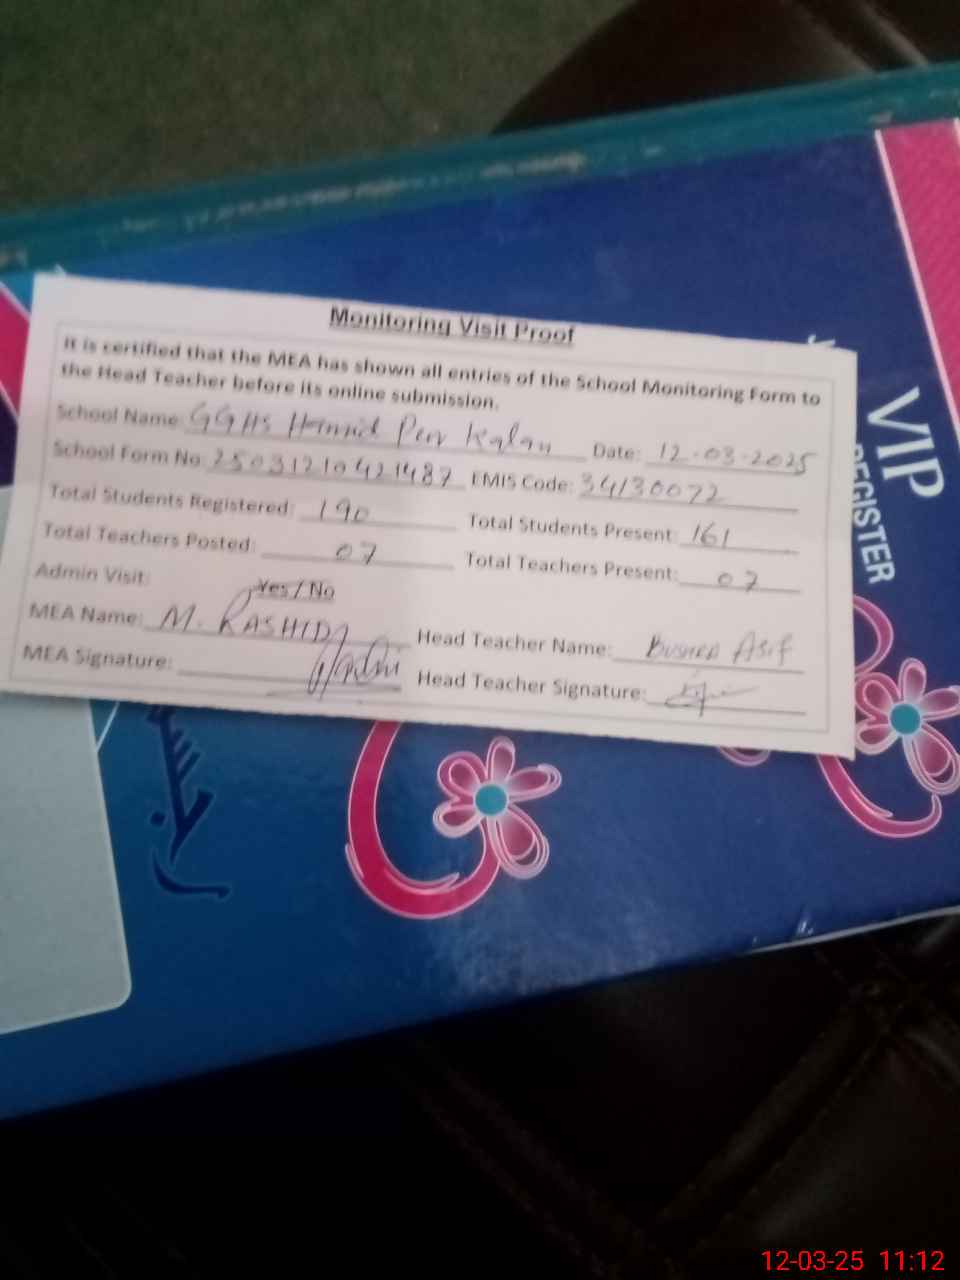 Monitoring Visit Proof
It is certified that the MEA has shown all entries of the School Monitoring Form to
the Head Teacher before its online submission.
School Name: GGHS Hamid Pur Kalan Date: 12-03-2025
School Form No: 25031210421487 EMIS Code: 34130072
Total Students Registered: 190 Total Students Present: 161
Total Teachers Posted: 07 Total Teachers Present: 07
Admin Visit: Yes / No
MEA Name: M. RASHID Head Teacher Name: Bushra Asif
MEA Signature: Head Teacher Signature:
VIP
REGISTER
12-03-25 11:12